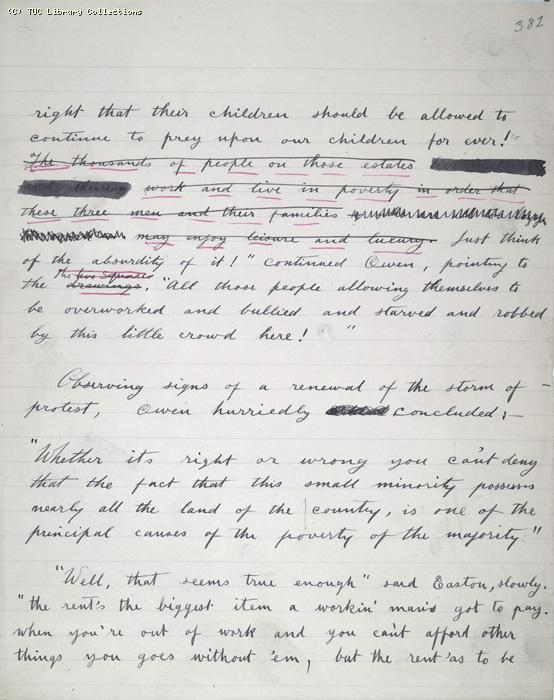 (C) TUC Library Collections
382
right that their children should be allowed to
continue to prey upon our children for ever!
The thousands of people on those estates
work and live in poverty in order that
these three men and their families
may enjoy leisure and luxury. Just think
of the absurdity of it!" continued Owen, pointing to
the two squares
the drawings. "All those people allowing themselves to
be overworked and bullied and starved and robbed
by this little crowd here! "
Observing signs of a renewal of the storm of –
protest, Owen hurriedly concluded:–
"Whether its right or wrong you can't deny
that the fact that this small minority possesses
nearly all the land of the country, is one of the
principal causes of the poverty of the majority"
"Well, that seems true enough" said Easton, slowly.
"the rent's the biggest item a workin' man's got to pay.
when you're out of work and you can't afford other
things you goes without 'em, but the rent 'as to be